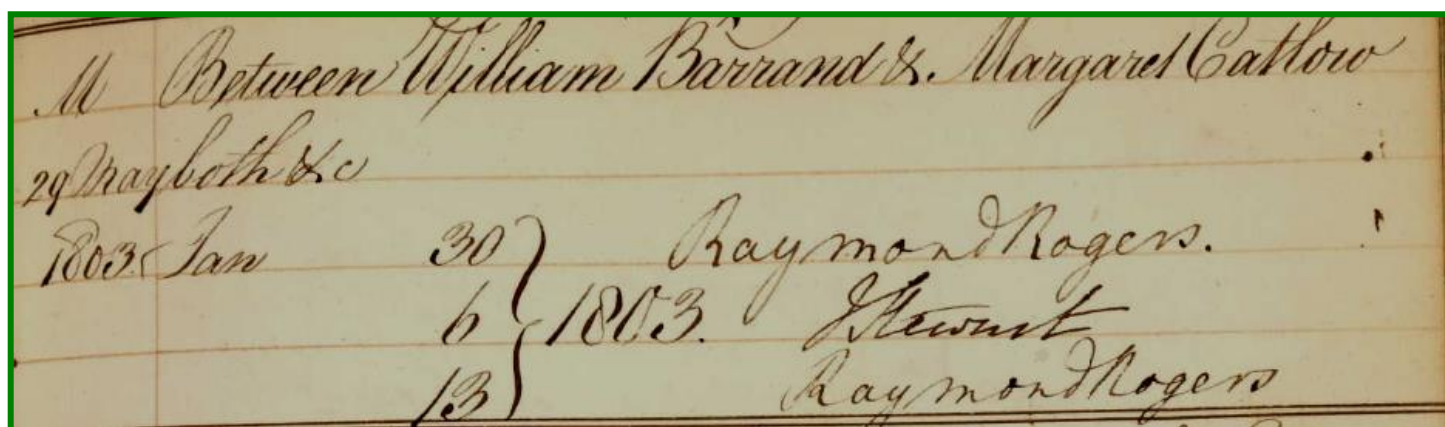 M Between William Barrand & Margaret Catlow
29 May both &c
1803 Jan 30 Raymond Rogers.
6 1803. J Stewart
13 Raymond Rogers